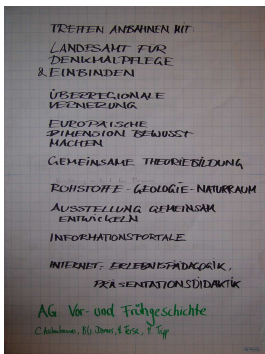 TREFFEN ANBAHNEN MIT
LANDESAMT FÜR
DENKMALPFLEGE
& EINBINDEN
ÜBERREGIONALE
VERNETZUNG
EUROPÄISCHE
DIMENSION BEWUSST
MACHEN
GEMEINSAME THEORIEBILDUNG
ROHSTOFFE-GEOLOGIE-NATURRAUM
AUSSTELLUNG GEMEINSAM
ENTWICKELN
INFORMATIONSPORTALE
INTERNET, ERLEBNISPÄDAGOGIK,
PRÄSENTATIONSDIDAKTIK
AG Vor- und Frühgeschichte